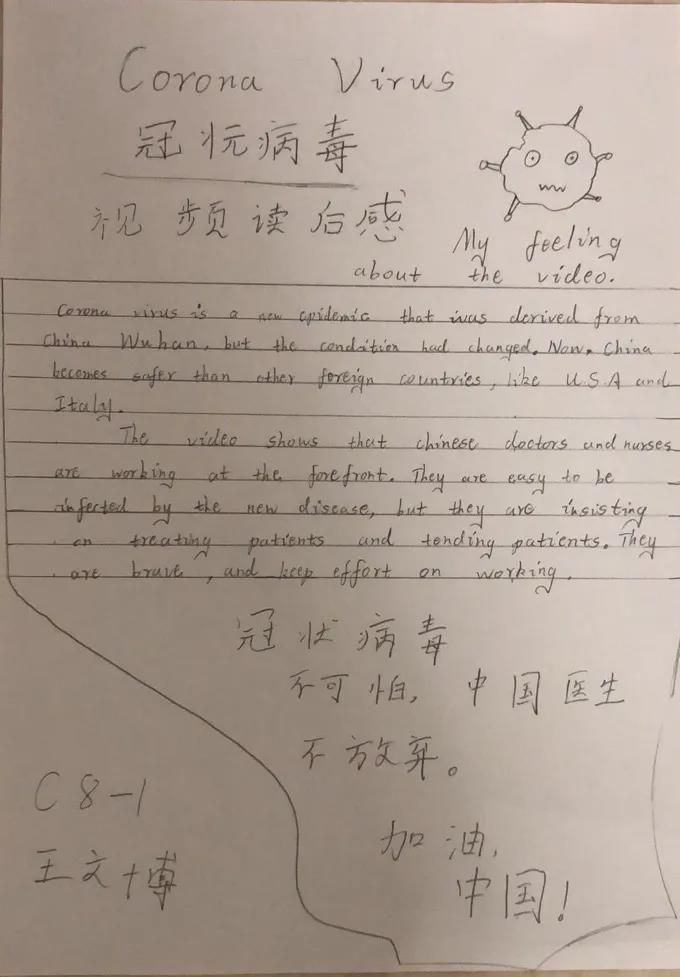 Corona Virus
冠状病毒
视频读后感
My feeling
about the video.
Corona virus is a new epidemic that was derived from
China Wuhan, but the condition had changed. Now, China
becomes safer than other foreign countries, like U.S.A and
Italy.
The video shows that chinese doctors and nurses
are working at the forefront. They are easy to be
infected by the new disease, but they are insisting
on treating patients and tending patients. They
are brave, and keep effort on working.
冠状病毒
不可怕, 中国医生
不放弃。
加油,
中国!
C8-1
王文博